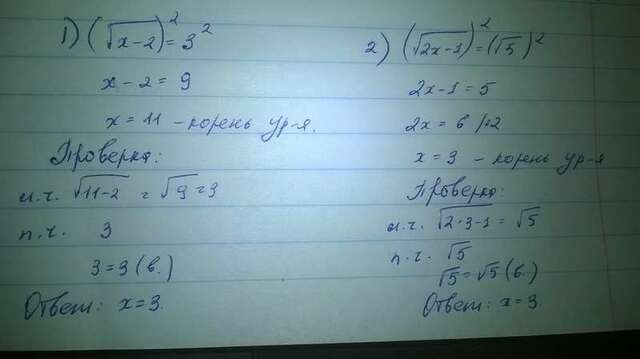 1) (√x-2)² = 3²
x-2 = 9
x = 11 - корень ур-я.
Проверка:
л.ч. √11-2 = √9 = 3
п.ч. 3
3 = 3 (в.)
Ответ: x = 3.
2) (√2x-1)² = (√5)²
2x-1 = 5
2x = 6 /:2
x = 3 - корень ур-я
Проверка:
л.ч. √2·3-1 = √5
п.ч. √5
√5 = √5 (в.)
Ответ: x = 3.